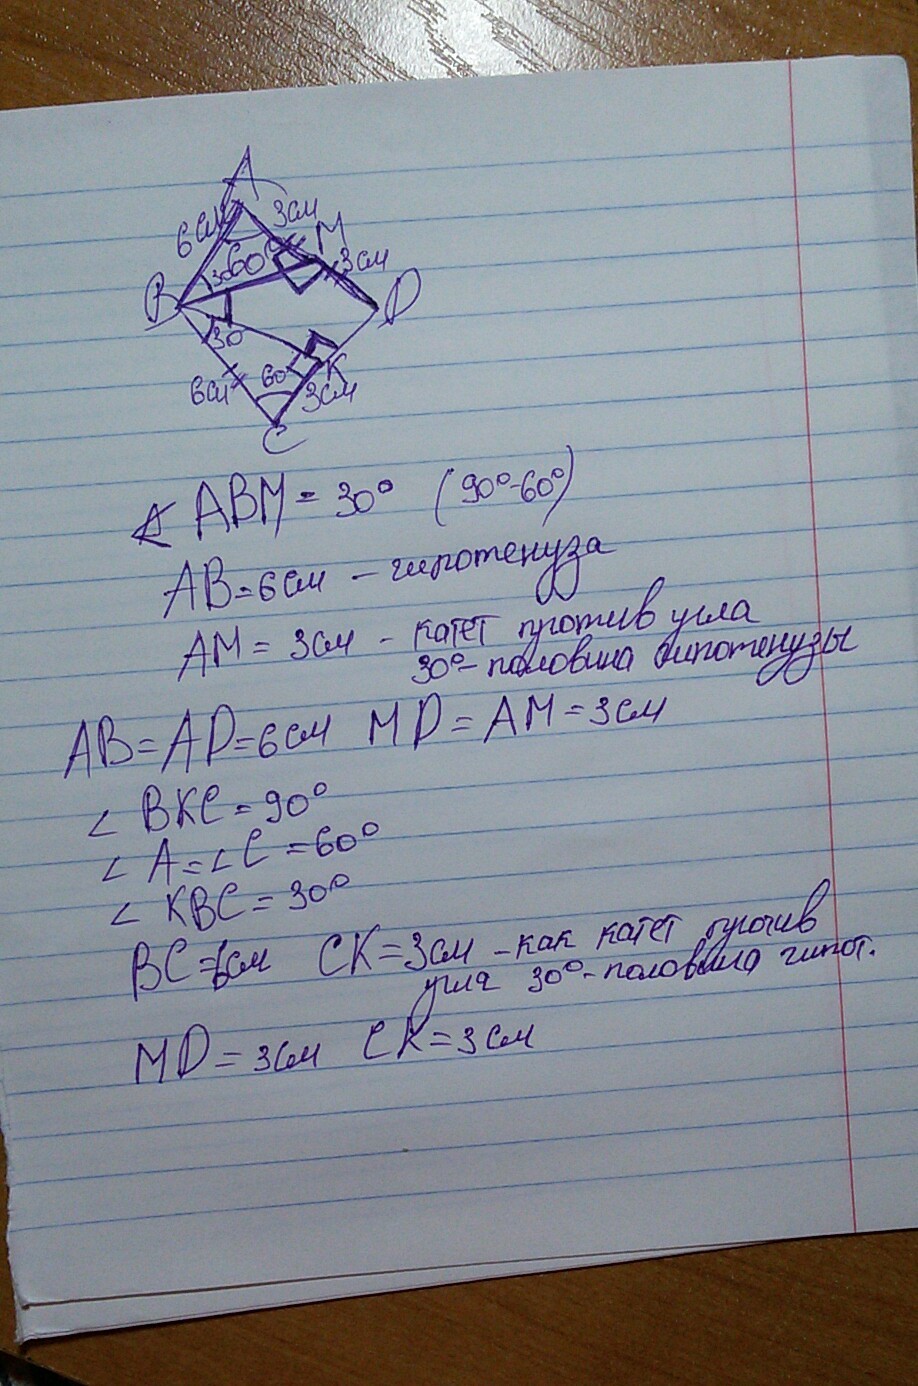 A
6см 3см
M
30 60° 3см
B D
30
K
6см 60 3см
C
∢ ABM = 30° (90°-60°)
AB=6см - гипотенуза
AM = 3см - катет против угла
30°- половина гипотенузы
AB=AD=6см MD=AM=3см
∠ BKC = 90°
∠ A=∠C=60°
∠ KBC = 30°
BC=6см CK=3см - как катет против
угла 30°-половина гипот.
MD = 3см CK=3см